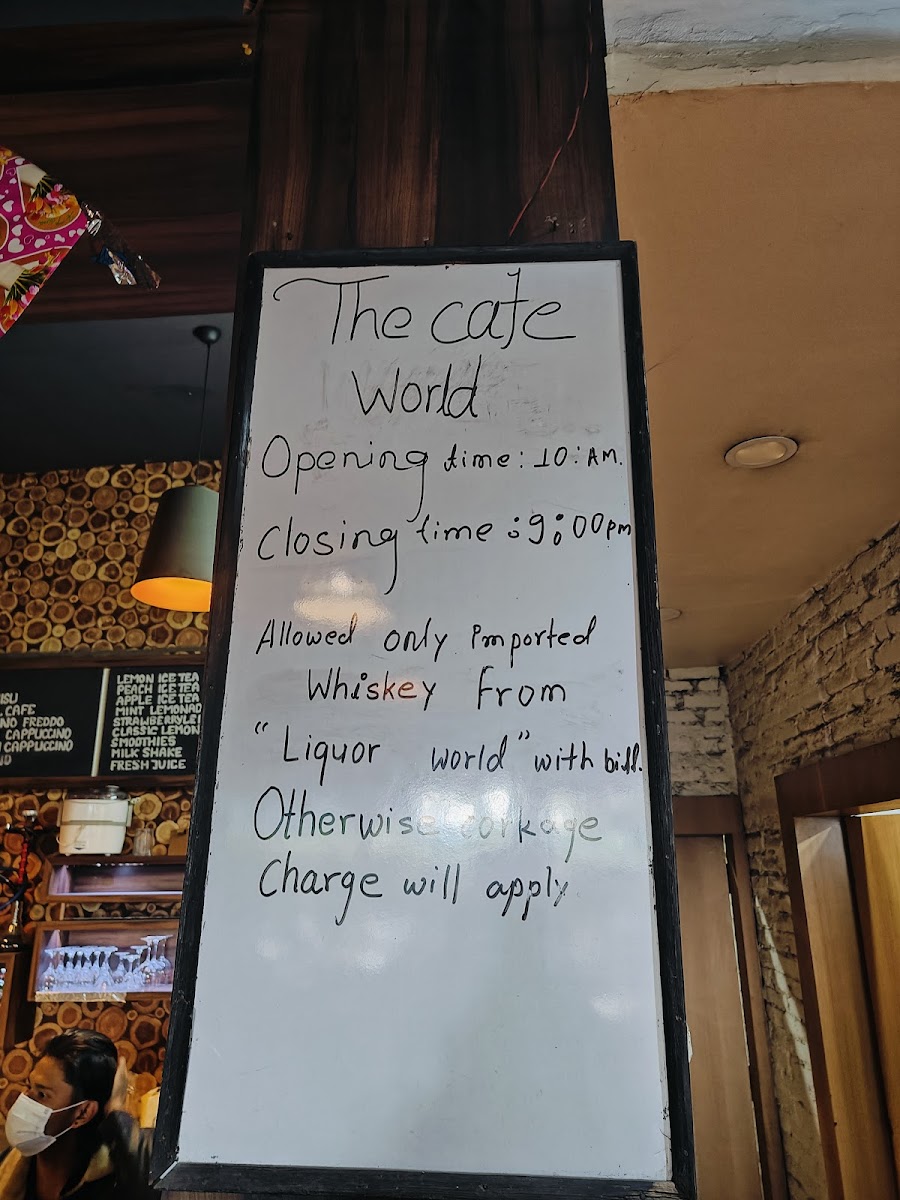 The cafe
World
Opening time: 10:AM.
Closing time :9:00pm
Allowed only imported
Whiskey from
"Liquor world" with bill.
Otherwise corkage
Charge will apply
CAFE
FREDDO
CAPPUCCINO
CAPPUCCINO
LEMON ICE TEA
PEACH ICE TEA
APPLE ICE TEA
MINT LEMONAD
CLASSIC LEMON
SMOOTHIES
MILK SHAKE
FRESH JUICE